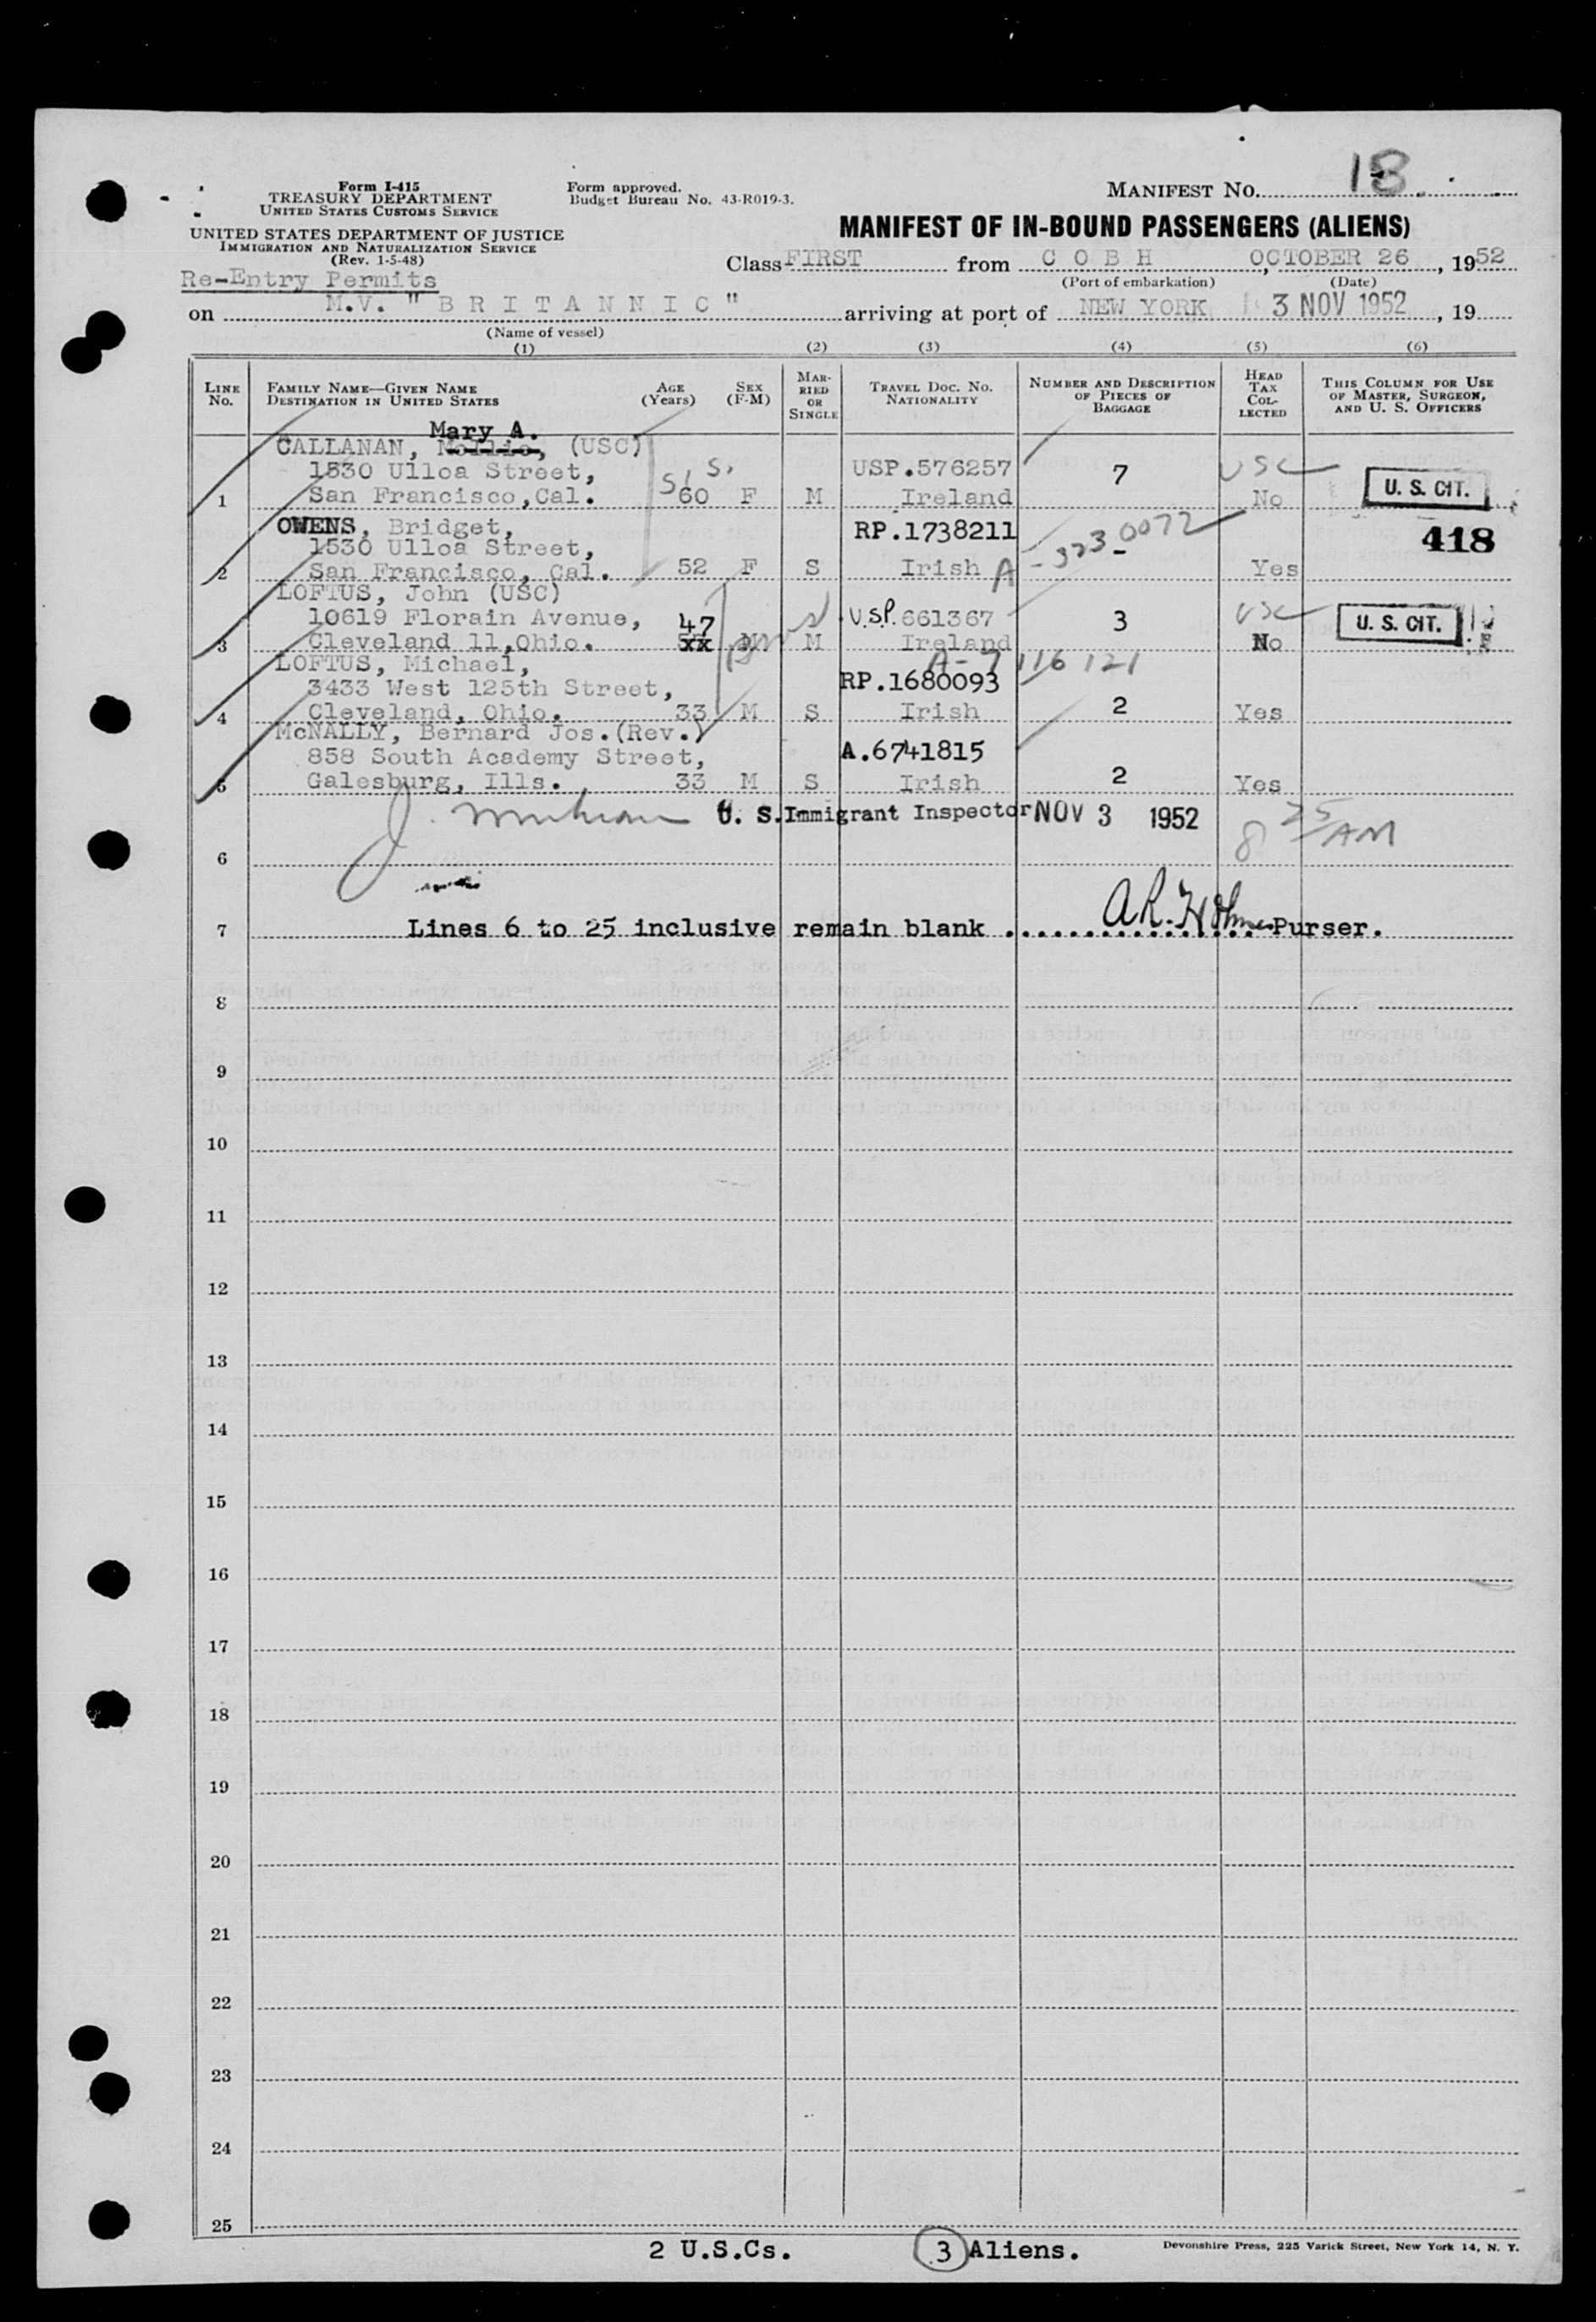 18
Form I-415
TREASURY DEPARTMENT
UNITED STATES CUSTOMS SERVICE
UNITED STATES DEPARTMENT OF JUSTICE
IMMIGRATION AND NATURALIZATION SERVICE
(Rev. 1-5-48)
Form approved.
Budget Bureau No. 43-R019-3.
MANIFEST NO.
MANIFEST OF IN-BOUND PASSENGERS (ALIENS)
Class FIRST from C O B H, OCTOBER 26, 1952
(Port of embarkation) (Date)
Re-Entry Permits
on M.V. "B R I T A N N I C" arriving at port of NEW YORK 3 NOV 1952, 19
(Name of vessel)
(1) (2) (3) (4) (5) (6)
LINE NO. FAMILY NAME—GIVEN NAME DESTINATION IN UNITED STATES AGE (Years) SEX (F-M) MARRIED OR SINGLE TRAVEL DOC. NO. NATIONALITY NUMBER AND DESCRIPTION OF PIECES OF BAGGAGE HEAD TAX COLLECTED THIS COLUMN FOR USE OF MASTER, SURGEON, AND U. S. OFFICERS
Mary A.
CALLANAN, Mollie, (USC)
1530 Ulloa Street, S/S. USP.576257 7 USC
1 San Francisco, Cal. 60 F M Ireland No U. S. CIT.
OWENS, Bridget, RP.1738211 418
1530 Ulloa Street, A-323 0072
2 San Francisco, Cal. 52 F S Irish - Yes
LOFTUS, John (USC)
10619 Florain Avenue, 47 U.S.P. 661367 3 USC U. S. CIT.
3 Cleveland 11, Ohio. xx M M Ireland No
LOFTUS, Michael, A-7 116 121
3433 West 125th Street, RP.1680093
4 Cleveland, Ohio. 33 M S Irish 2 Yes
McNALLY, Bernard Jos. (Rev.)
858 South Academy Street, A.6741815
5 Galesburg, Ills. 33 M S Irish 2 Yes
U. S. Immigrant Inspector NOV 3 1952 8 25 AM
6
7 Lines 6 to 25 inclusive remain blank .............. Purser.
8
9
10
11
12
13
14
15
16
17
18
19
20
21
22
23
24
25
2 U.S.Cs. 3 Aliens.
Devonshire Press, 225 Varick Street, New York 14, N. Y.